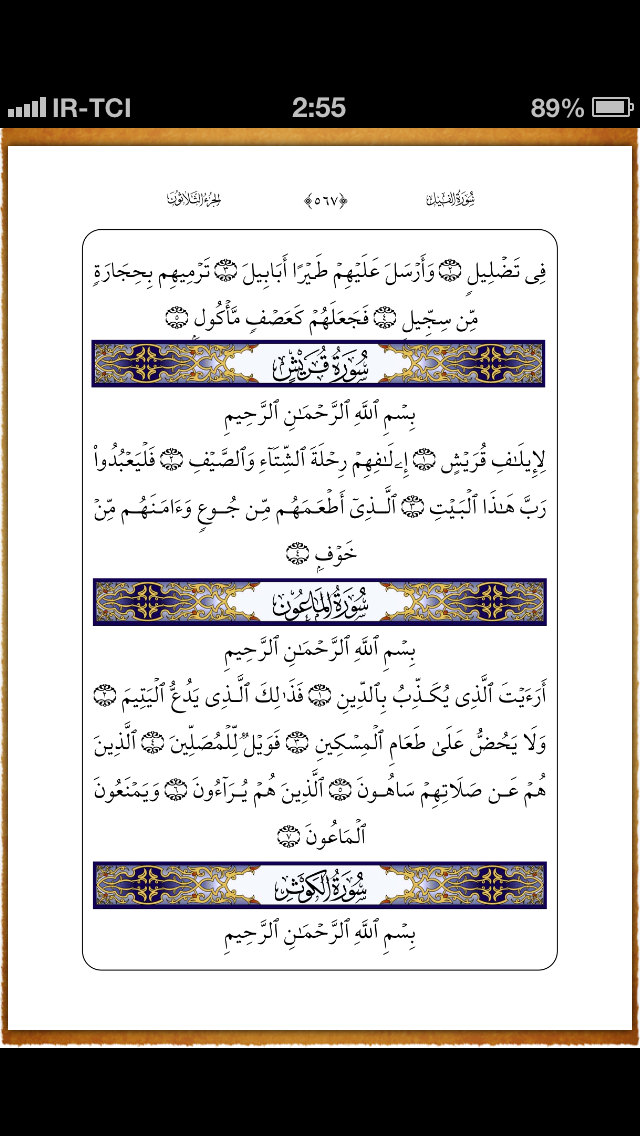 IR-TCI 2:55 89%
الجزء الثلاثون ﴿٥٦٧﴾ سورة الفيل
فِى تَضْلِيلٍ ٢ وَأَرْسَلَ عَلَيْهِمْ طَيْرًا أَبَابِيلَ ٣ تَرْمِيهِم بِحِجَارَةٍ
مِّن سِجِّيلٍ ٤ فَجَعَلَهُمْ كَعَصْفٍ مَّأْكُولٍ ٥
سُورَةُ قُرَيْشٍ
بِسْمِ ٱللَّهِ ٱلرَّحْمَـٰنِ ٱلرَّحِيمِ
لِإِيلَـٰفِ قُرَيْشٍ ١ إِۦلَـٰفِهِمْ رِحْلَةَ ٱلشِّتَآءِ وَٱلصَّيْفِ ٢ فَلْيَعْبُدُوا۟
رَبَّ هَـٰذَا ٱلْبَيْتِ ٣ ٱلَّـذِىٓ أَطْعَمَهُم مِّن جُـوعٍ وَءَامَنَهُـم مِّنْ
خَوْفٍ ٤
سُورَةُ المَاعُون
بِسْمِ ٱللَّهِ ٱلرَّحْمَـٰنِ ٱلرَّحِيمِ
أَرَءَيْتَ ٱلَّذِى يُكَـذِّبُ بِٱلدِّينِ ١ فَذَٰلِكَ ٱلَّـذِى يَدُعُّ ٱلْيَتِيمَ ٢
وَلَا يَحُضُّ عَلَىٰ طَعَامِ ٱلْمِسْكِينِ ٣ فَوَيْلٌ لِّلْمُصَلِّينَ ٤ ٱلَّذِينَ
هُمْ عَـن صَلَاتِهِمْ سَاهُـونَ ٥ ٱلَّذِينَ هُمْ يُـرَآءُونَ ٦ وَيَمْنَعُونَ
ٱلْمَاعُونَ ٧
سُورَةُ الكَوْثَرِ
بِسْمِ ٱللَّهِ ٱلرَّحْمَـٰنِ ٱلرَّحِيمِ